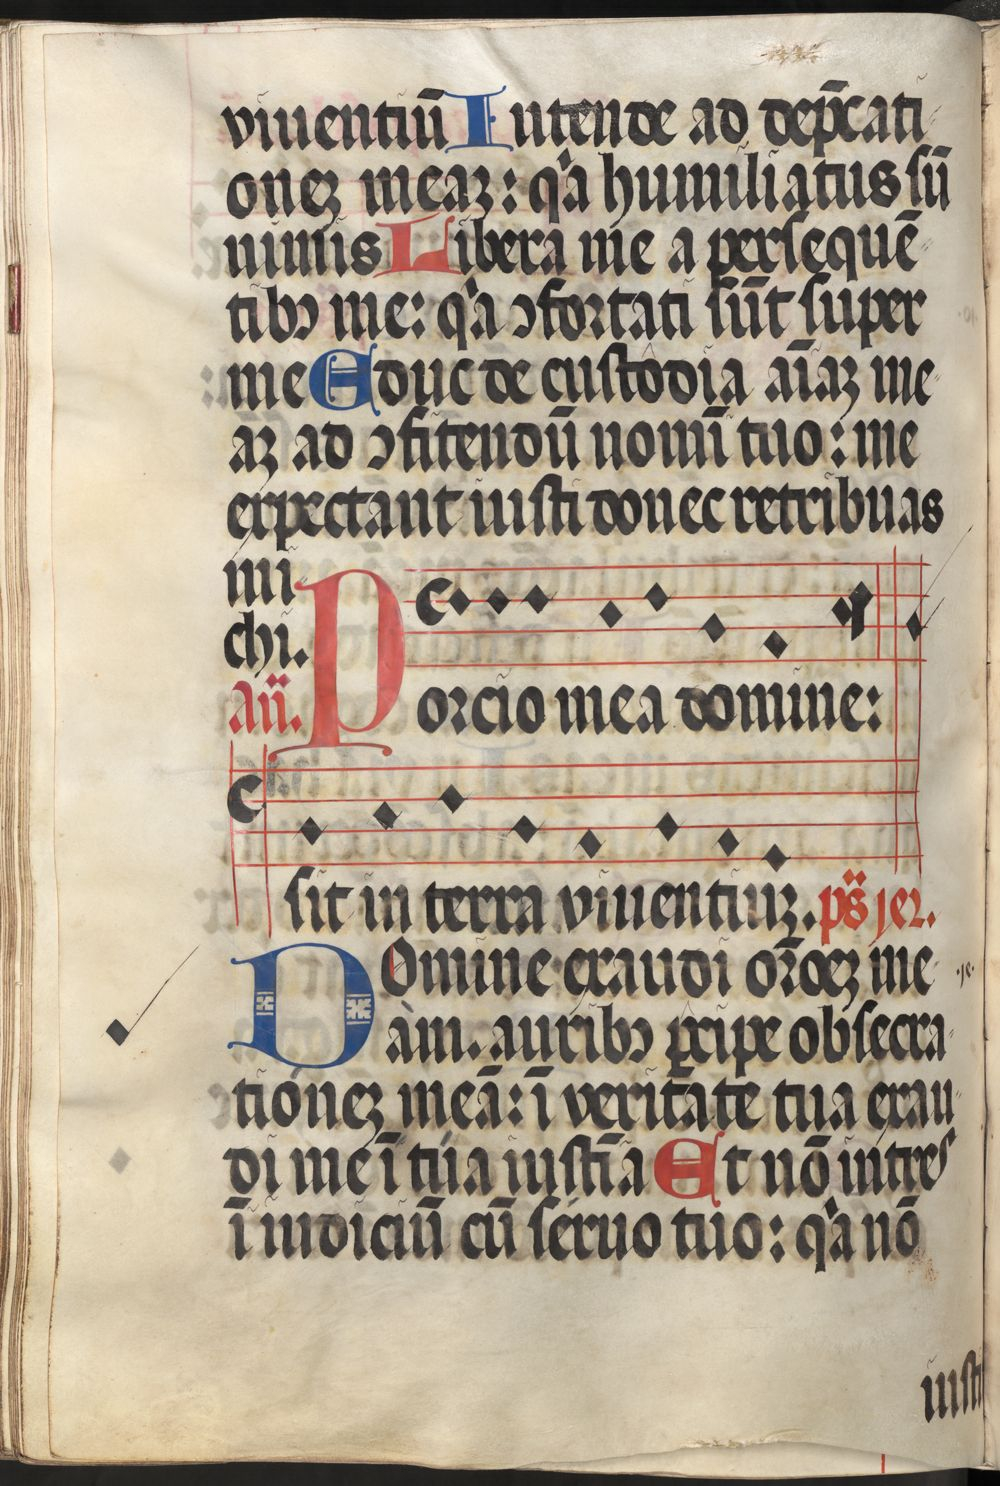 viuentiū Intende ad dep̄cati
oneꝫ meaꝫ: q̓a humiliatus sū
nimis Libera me a persequē
tibꝯ me: q̓a ꝯfortati sūt super
me Educ de custodia aīaꝫ me
aꝫ ad ꝯfitendū nomī tuo: me
expectant iusti donec retribuas
mi
chi.
Añ. Porcio mea domine:
sit in terra viuentiuꝫ. ps̄ jer.
Domine exaudi or̄oeꝫ me
am. auribꝯ ꝑcipe obsecra
tioneꝫ meā: ī veritate tua exau
di me ī tua iustīa Et nō intres
ī iudiciū cū seruo tuo: q̓a nō
iusti